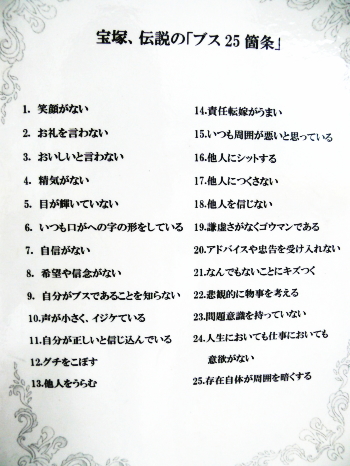 宝塚、伝説の「ブス25箇条」
1. 笑顔がない
2. お礼を言わない
3. おいしいと言わない
4. 精気がない
5. 目が輝いていない
6. いつも口がへの字の形をしている
7. 自信がない
8. 希望や信念がない
9. 自分がブスであることを知らない
10.声が小さく、イジケている
11.自分が正しいと信じ込んでいる
12.グチをこぼす
13.他人をうらむ
14.責任転嫁がうまい
15.いつも周囲が悪いと思っている
16.他人にシットする
17.他人につくさない
18.他人を信じない
19.謙虚さがなくゴウマンである
20.アドバイスや忠告を受け入れない
21.なんでもないことにキズつく
22.悲観的に物事を考える
23.問題意識を持っていない
24.人生においても仕事においても
意欲がない
25.存在自体が周囲を暗くする